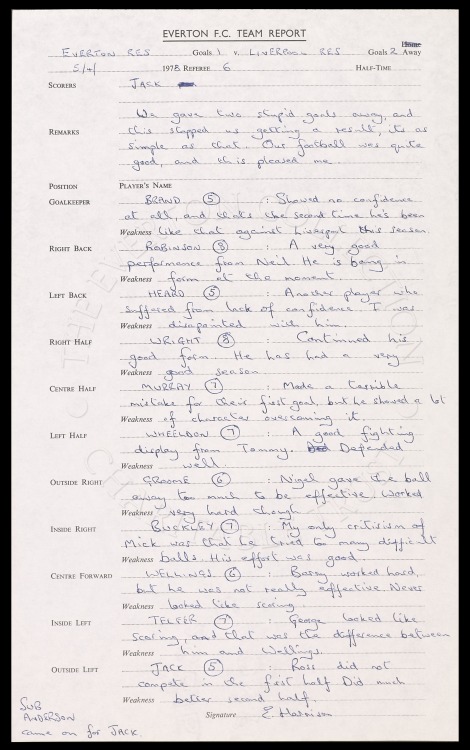 EVERTON F.C. TEAM REPORT
EVERTON RES Goals 1 v. LIVERPOOL RES Goals 2 Home Away
5/4/ 1978 REFEREE 6 HALF-TIME
SCORERS JACK
We gave two stupid goals away, and
REMARKS this stopped us getting a result, its as
simple as that. Our football was quite
good, and this pleased me.
POSITION PLAYER'S NAME
GOALKEEPER BRAND 5 : Showed no confidence
at all, and thats the second time he's been
Weakness like that against Liverpool this season.
RIGHT BACK ROBINSON 8 : A very good
performance from Neil. He is being in
Weakness form at the moment.
LEFT BACK HEARD 5 : Another player who
suffered from lack of confidence. I was
Weakness disapointed with him.
RIGHT HALF WRIGHT 8 : Continued his
good form. He has had a very
Weakness good season.
CENTRE HALF MURRAY 7 : Made a terrible
mistake for their first goal, but he showed a lot
Weakness of character overcoming it.
LEFT HALF WHEELDON 7 : A good fighting
display from Tommy. Defended
Weakness well.
OUTSIDE RIGHT GROOME 6 : Nigel gave the ball
away too much to be effective. Worked
Weakness very hard though.
INSIDE RIGHT BUCKLEY 7 : My only critisism of
Mick was that he tried to many difficult
Weakness balls. His effort was good.
CENTRE FORWARD WELLINGS 6 : Barry worked hard,
but he was not really effective. Never
Weakness looked like scoring.
INSIDE LEFT TELFER 7 : George looked like
scoring, and that was the difference between
Weakness him and Wellings.
OUTSIDE LEFT JACK 5 : Ross did not
compete in the first half. Did much
Weakness better second half.
Signature E. Harrison
SUB
ANDERSON
came on for JACK.